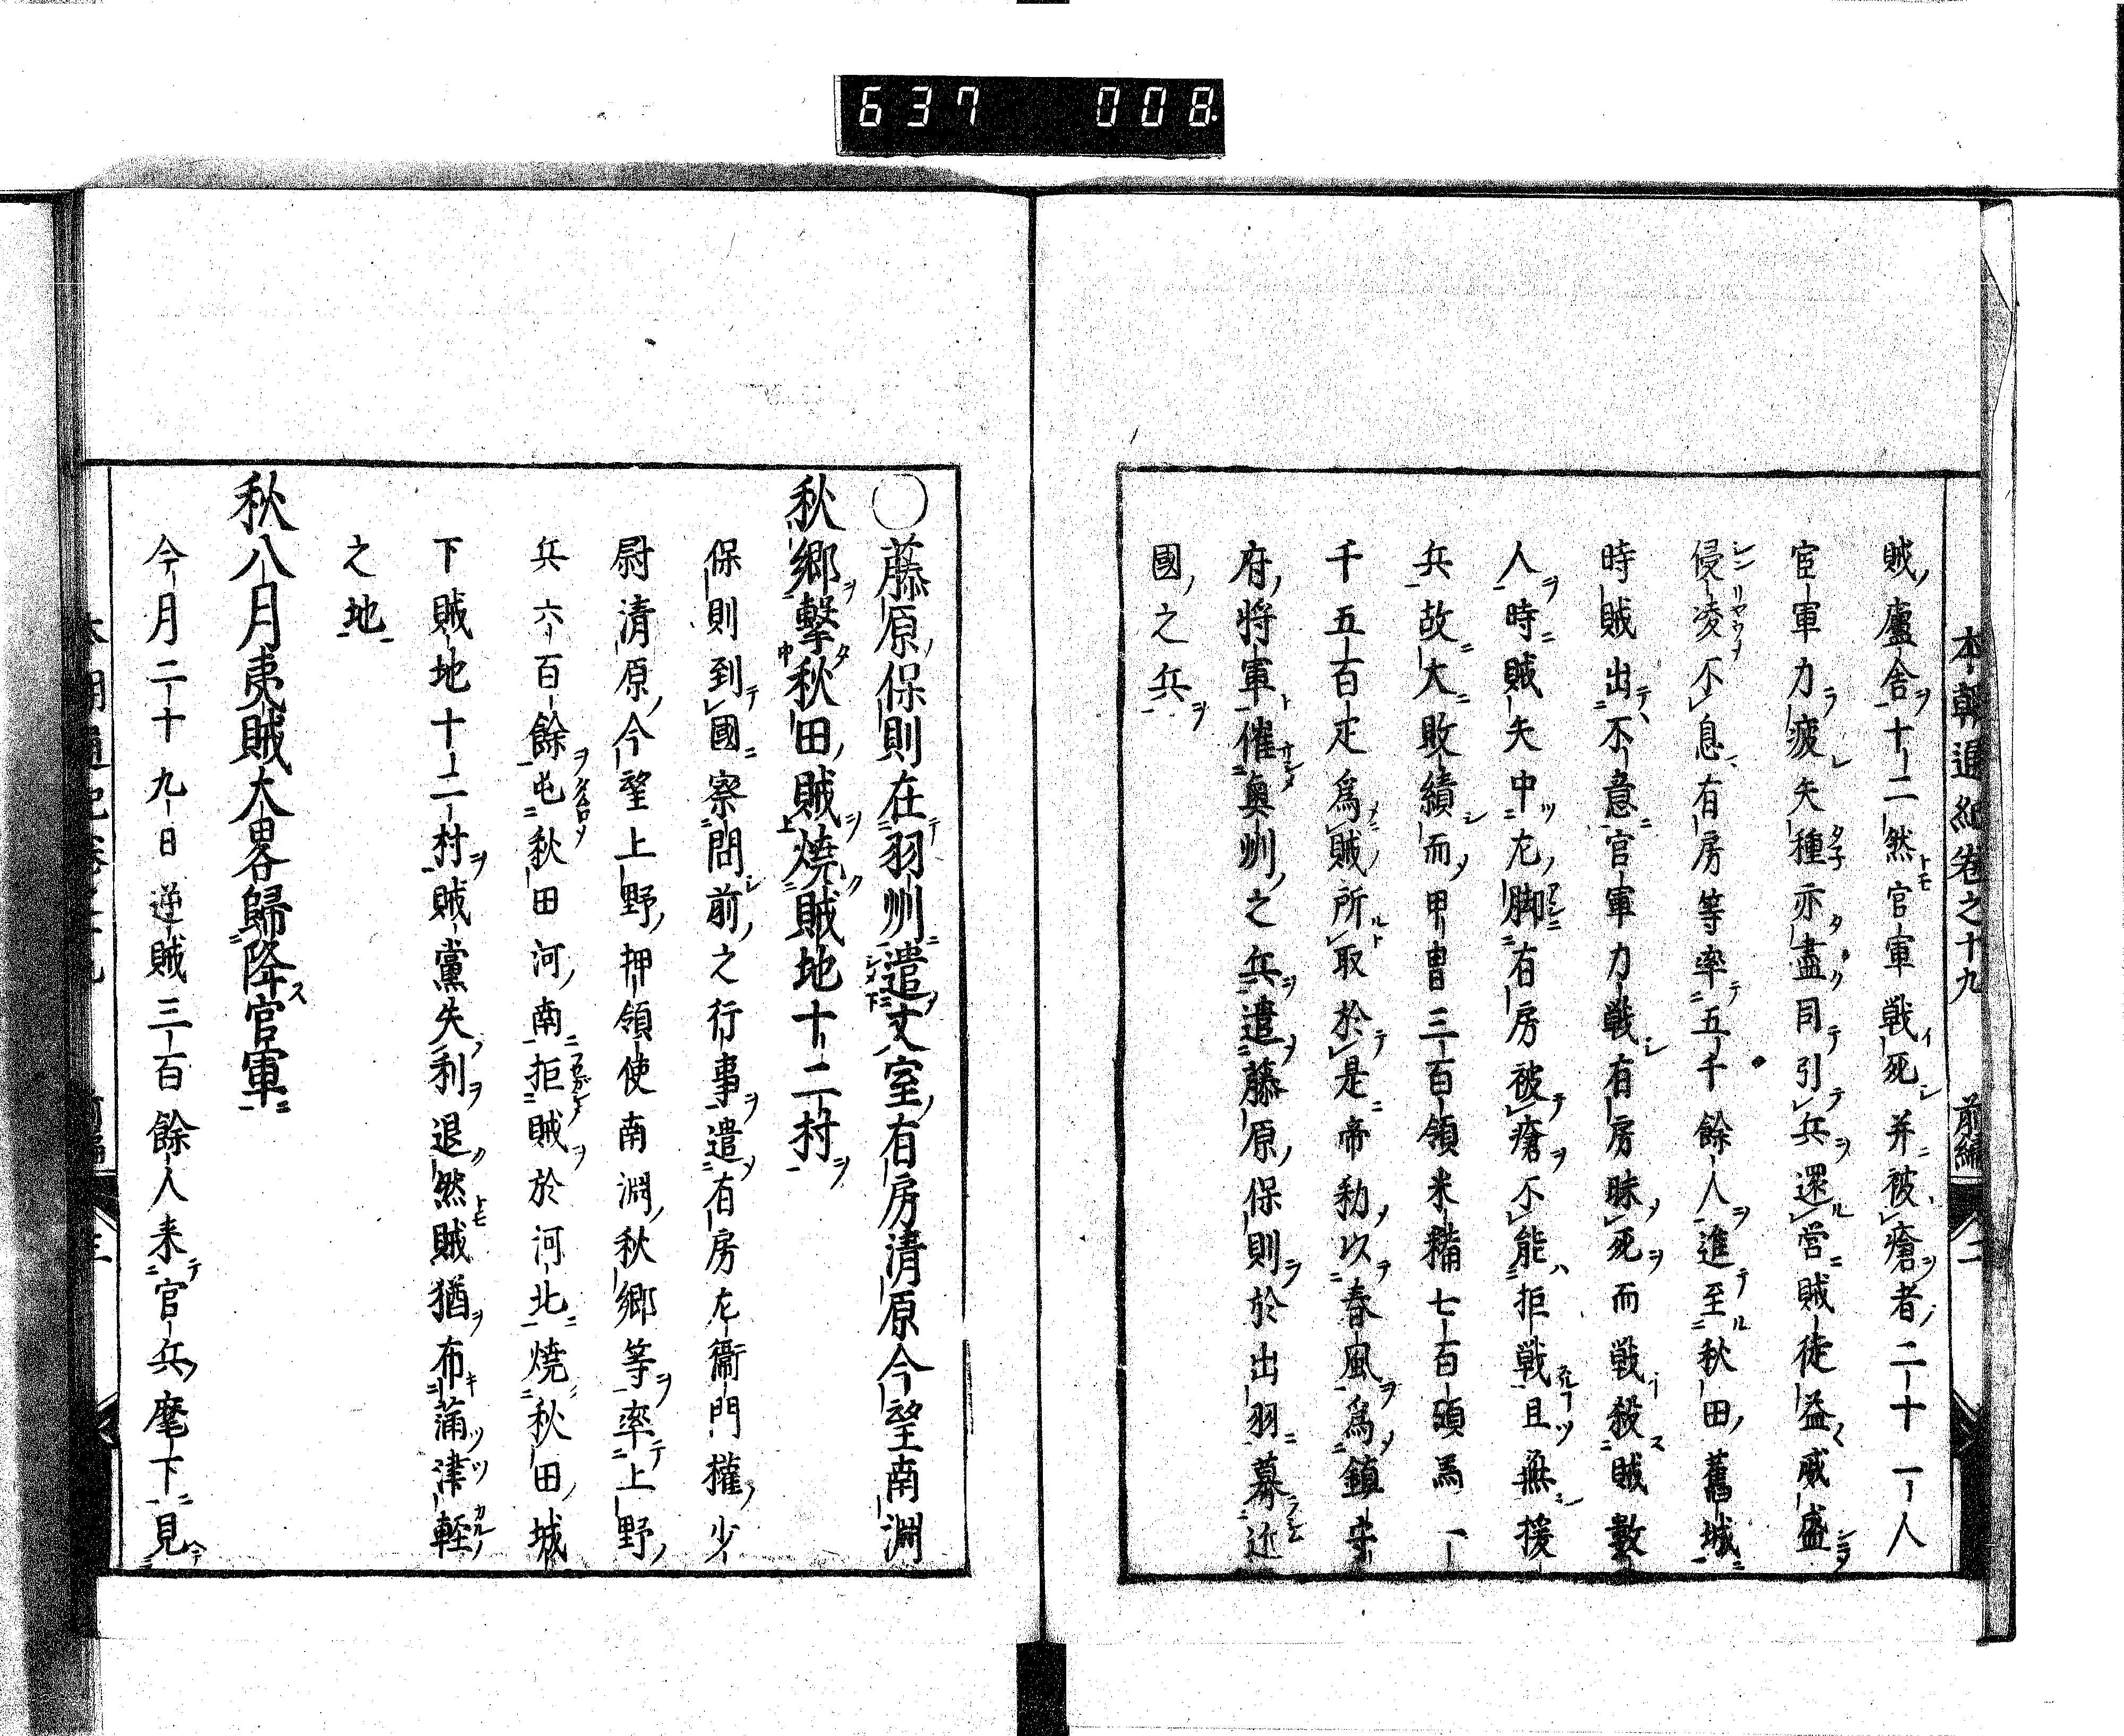 637 008
本朝通紀卷之十九 前編 二
賊廬舍十二然官軍戦死并被瘡者二十一人
官軍力疲矢種亦盡同引兵還営賊徒益威盛
侵凌不息有房等率五千餘人進至秋田舊城
時賊出不意官軍力戦有房昧死而戦殺賊數
人時賊矢中左脚有房被瘡不能拒戦且無援
兵故大敗績而甲冑三百領米糒七百碩馬一
千五百疋為賊所取於是帝勅以春風為鎮守
府将軍催奥州之兵遣藤原保則於出羽募近
國之兵
○藤原保則在羽州遣文室有房清原今望南淵
秋郷擊秋田賊焼賊地十二村
保則到國察問前之行事遣有房左衞門權少
尉清原今望上野押領使南淵秋郷等率上野
兵六百餘屯秋田河南拒賊於河北焼秋田城
下賊地十二村賊黨失利退然賊猶布蒲津軽
之地
秋八月夷賊大畧歸降官軍
今月二十九日逆賊三百餘人来官兵麾下見